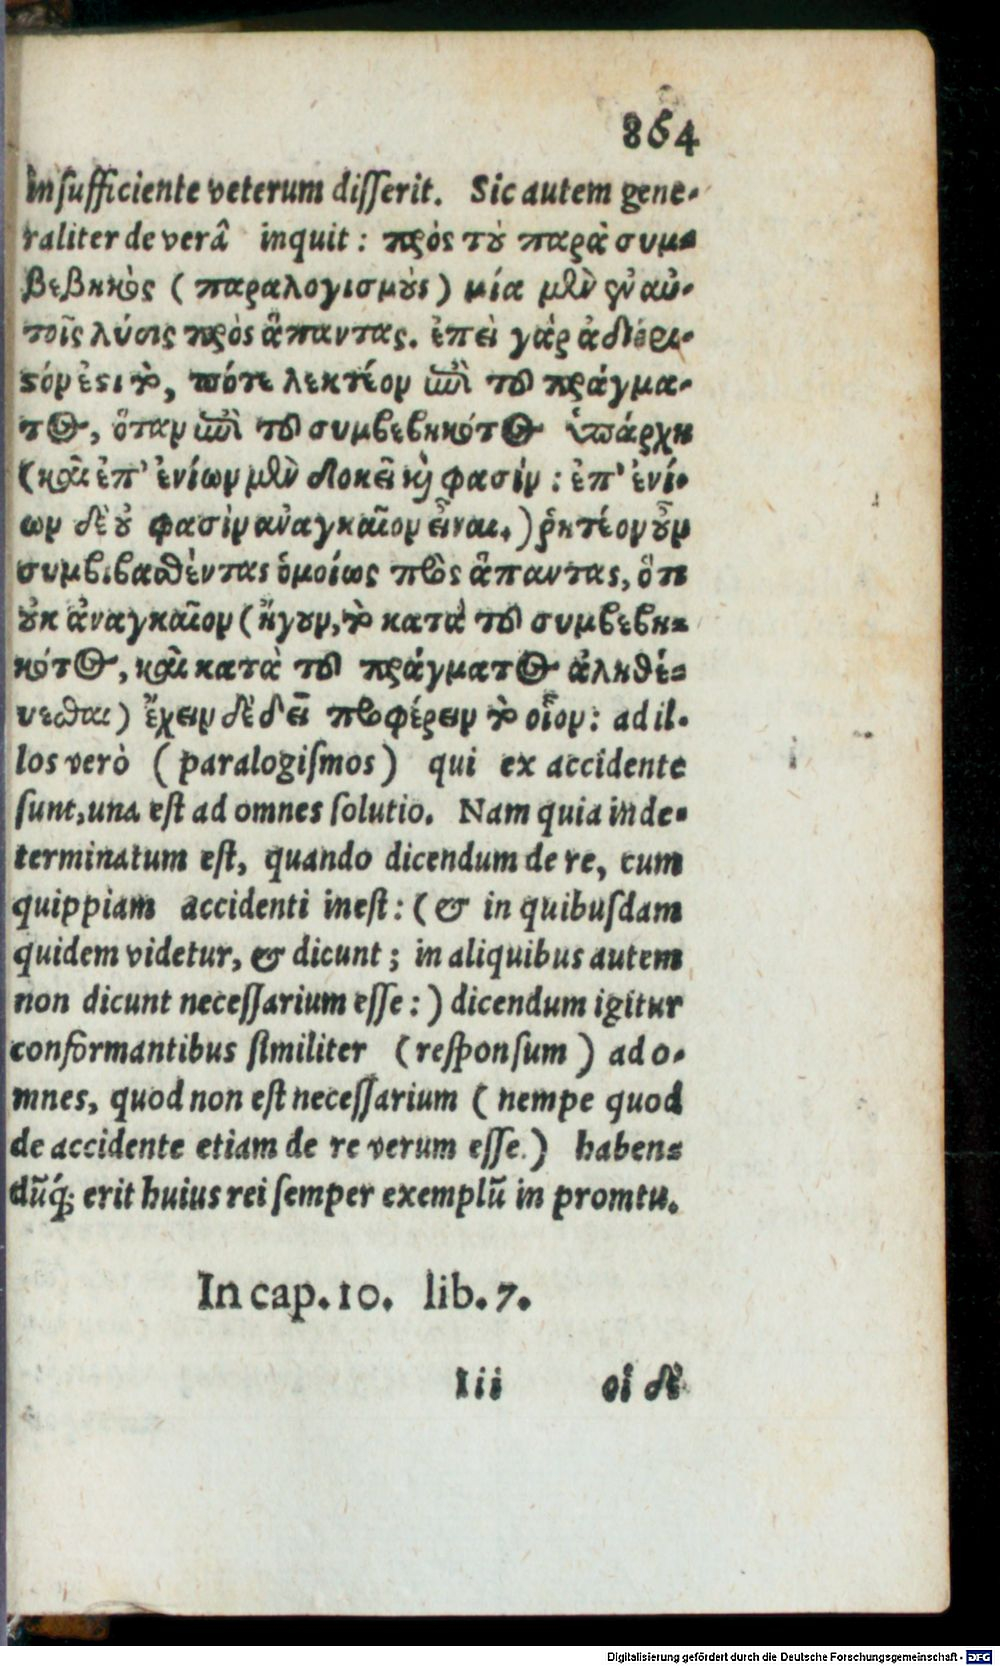 864
insufficiente veterum disserit. Sic autem gene-
raliter de verâ inquit: πρὸς τοὺ παρὰ συμ-
βεβηκὸς (παραλογισμοὺς) μία μὲν ἡ αὐ-
τοῖς λύσις πρὸς ἅπαντας. ἐπεὶ γὰρ ἀδιόρι-
στόν ἐστι τὸ, πότε λεκτέον ἐπὶ τοῦ πράγμα-
τος, ὅταν ἐπὶ τοῦ συμβεβηκότος ὑπάρχῃ
(καὶ ἐπ' ἐνίων μὲν δοκεῖ καὶ φασίν: ἐπ' ἐνί-
ων δὲ οὐ φασὶν ἀναγκαῖον εἶναι.) ῥητέον οὖν
συμβιβασθέντας ὁμοίως πρὸς ἅπαντας, ὅτι
οὐκ ἀναγκαῖον (ἤγουν, τὸ κατὰ τοῦ συμβεβη-
κότος, καὶ κατὰ τοῦ πράγματος ἀληθέ-
υεσθαι) ἔχειν δὲ δεῖ προφέρειν τὸ οἷον: ad il-
los verò (paralogismos) qui ex accidente
sunt, una est ad omnes solutio. Nam quia inde-
terminatum est, quando dicendum de re, cum
quippiam accidenti inest: (& in quibusdam
quidem videtur, & dicunt; in aliquibus autem
non dicunt necessarium esse:) dicendum igitur
conformantibus similiter (responsum) ad o-
mnes, quod non est necessarium (nempe quod
de accidente etiam de re verum esse.) haben-
dũq́; erit huius rei semper exemplũ in promtu.
In cap. 10. lib. 7.
Iii οἱ δὲ
Digitalisierung gefördert durch die Deutsche Forschungsgemeinschaft - DFG